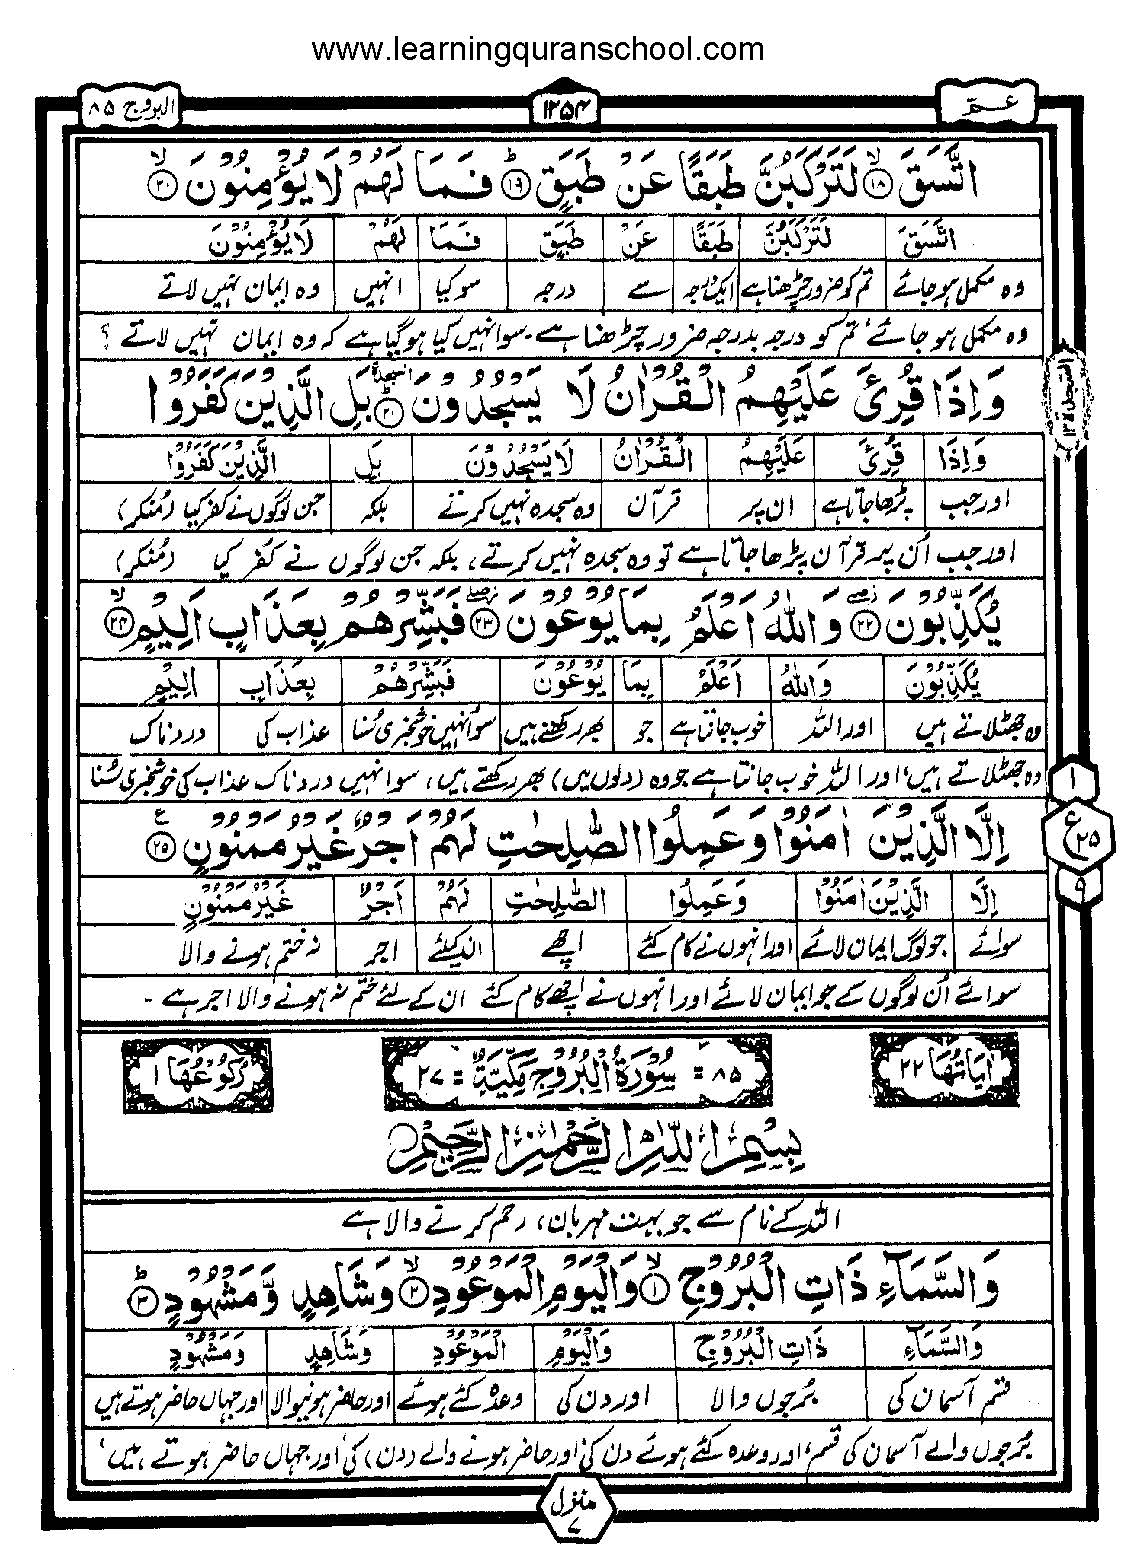 www.learningquranschool.com
عمّ
۱۲۵۴
البروج ۸۵
اتَّسَقَ ۱۸ لَتَرْكَبُنَّ طَبَقًا عَنْ طَبَقٍ ۱۹ فَمَا لَهُمْ لَا يُؤْمِنُوْنَ ۲۰
اتَّسَقَ لَتَرْكَبُنَّ طَبَقًا عَنْ طَبَقٍ فَمَا لَهُمْ لَا يُؤْمِنُوْنَ
وہ مکمل ہوجائے تم کو ضرور چڑھنا ہے ایک درجہ سے درجہ سو کیا انہیں وہ ایمان نہیں لاتے
وہ مکمل ہو جائے، تم کو درجہ بدرجہ ضرور چڑھنا ہے۔ سو انہیں کیا ہوگیا ہے کہ وہ ایمان نہیں لاتے ؟
وَاِذَا قُرِئَ عَلَيْهِمُ الْقُرْاٰنُ لَا يَسْجُدُوْنَ ۲۱ بَلِ الَّذِيْنَ كَفَرُوْا
السجدة
السجدة ۱۳
وَاِذَا قُرِئَ عَلَيْهِمُ الْقُرْاٰنُ لَا يَسْجُدُوْنَ بَلِ الَّذِيْنَ كَفَرُوْا
اور جب پڑھا جاتا ہے ان پر قرآن وہ سجدہ نہیں کرتے بلکہ جن لوگوں نے کفر کیا (مُنکر)
اور جب اُن پر قرآن پڑھا جاتا ہے تو وہ سجدہ نہیں کرتے، بلکہ جن لوگوں نے کفر کیا (مُنکر)
يُكَذِّبُوْنَ ۲۲ وَاللّٰهُ اَعْلَمُ بِمَا يُوْعُوْنَ ۲۳ فَبَشِّرْهُمْ بِعَذَابٍ اَلِيْمٍ ۲۴
يُكَذِّبُوْنَ وَاللّٰهُ اَعْلَمُ بِمَا يُوْعُوْنَ فَبَشِّرْهُمْ بِعَذَابٍ اَلِيْمٍ
وہ جھٹلاتے ہیں اور اللہ خوب جانتا ہے جو بھر رکھتے ہیں سو انہیں خوشخبری سُنا عذاب کی دردناک
وہ جھٹلاتے ہیں، اور اللہ خوب جانتا ہے جو وہ (دلوں میں) بھر رکھتے ہیں، سو انہیں دردناک عذاب کی خوشخبری سُنا
اِلَّا الَّذِيْنَ اٰمَنُوْا وَعَمِلُوا الصّٰلِحٰتِ لَهُمْ اَجْرٌ غَيْرُ مَمْنُوْنٍ ۲۵
۱
ع ۲۵
۹
اِلَّا الَّذِيْنَ اٰمَنُوْا وَعَمِلُوا الصّٰلِحٰتِ لَهُمْ اَجْرٌ غَيْرُ مَمْنُوْنٍ
سوائے جو لوگ ایمان لائے اور انہوں نے کام کئے اچھے ان کیلئے اجر نہ ختم ہونے والا
سوائے اُن لوگوں کے جو ایمان لائے اور انہوں نے اچھے کام کئے ان کے لئے ختم نہ ہونے والا اجر ہے ۔
اٰيَاتُهَا ۲۲
۸۵ = سُوْرَةُ الْبُرُوْجِ مَكِّيَّةٌ = ۲۷
رُكُوْعُهَا ۱
بِسْمِ اللّٰهِ الرَّحْمٰنِ الرَّحِيْمِ
اللہ کے نام سے جو بہت مہربان، رحم کرنے والا ہے
وَالسَّمَآءِ ذَاتِ الْبُرُوْجِ ۱ وَالْيَوْمِ الْمَوْعُوْدِ ۲ وَشَاهِدٍ وَّمَشْهُوْدٍ ۳
وَالسَّمَآءِ ذَاتِ الْبُرُوْجِ وَالْيَوْمِ الْمَوْعُوْدِ وَشَاهِدٍ وَمَشْهُوْدٍ
قسم آسمان کی بُرجوں والا اور دن کی وعدہ کئے ہوئے اور حاضر ہونیوالا اور جہاں حاضر ہوتے ہیں
بُرجوں والے آسمان کی قسم، اور وعدہ کئے ہوئے دن کی، اور حاضر ہونے والے (دن) کی، اور جہاں حاضر ہوتے ہیں،
منزل ۷